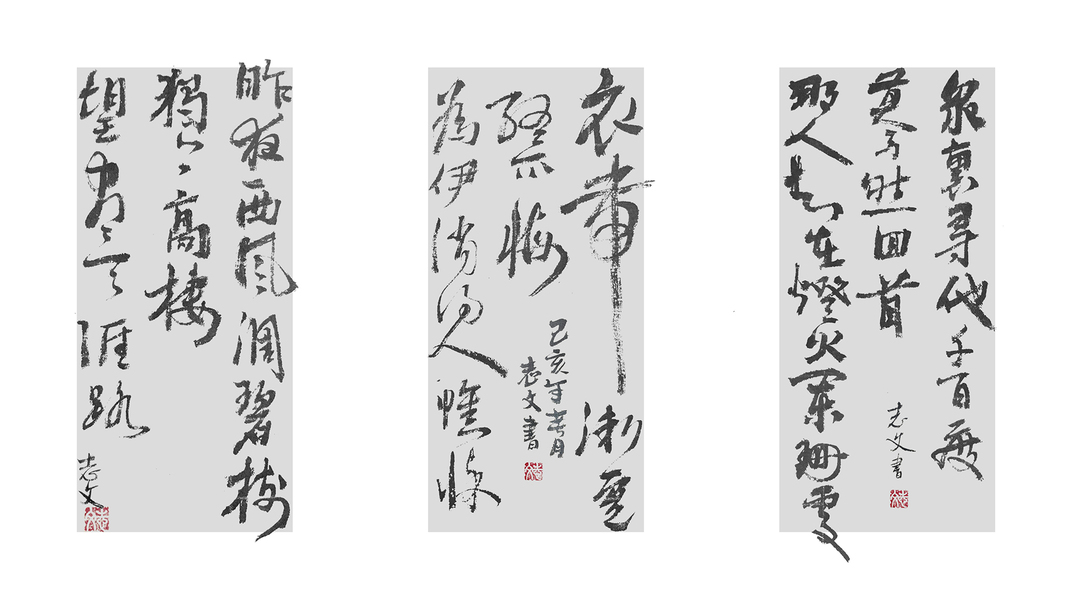 昨夜西風凋碧樹
獨上高樓
望盡天涯路
志文
衣帶漸寬
終不悔
己亥年春月
志文書
為伊消得人憔悴
眾裏尋他千百度
驀然回首
志文書
那人卻在燈火闌珊處